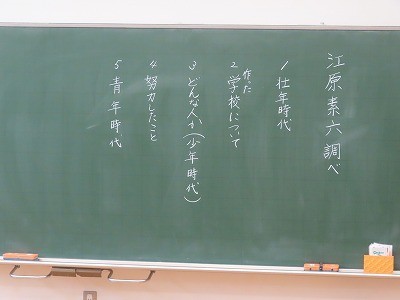 江原素六調べ
1 壮年時代
2 作った学校について
3 どんな人か(少年時代)
4 努力したこと
5 青年時代